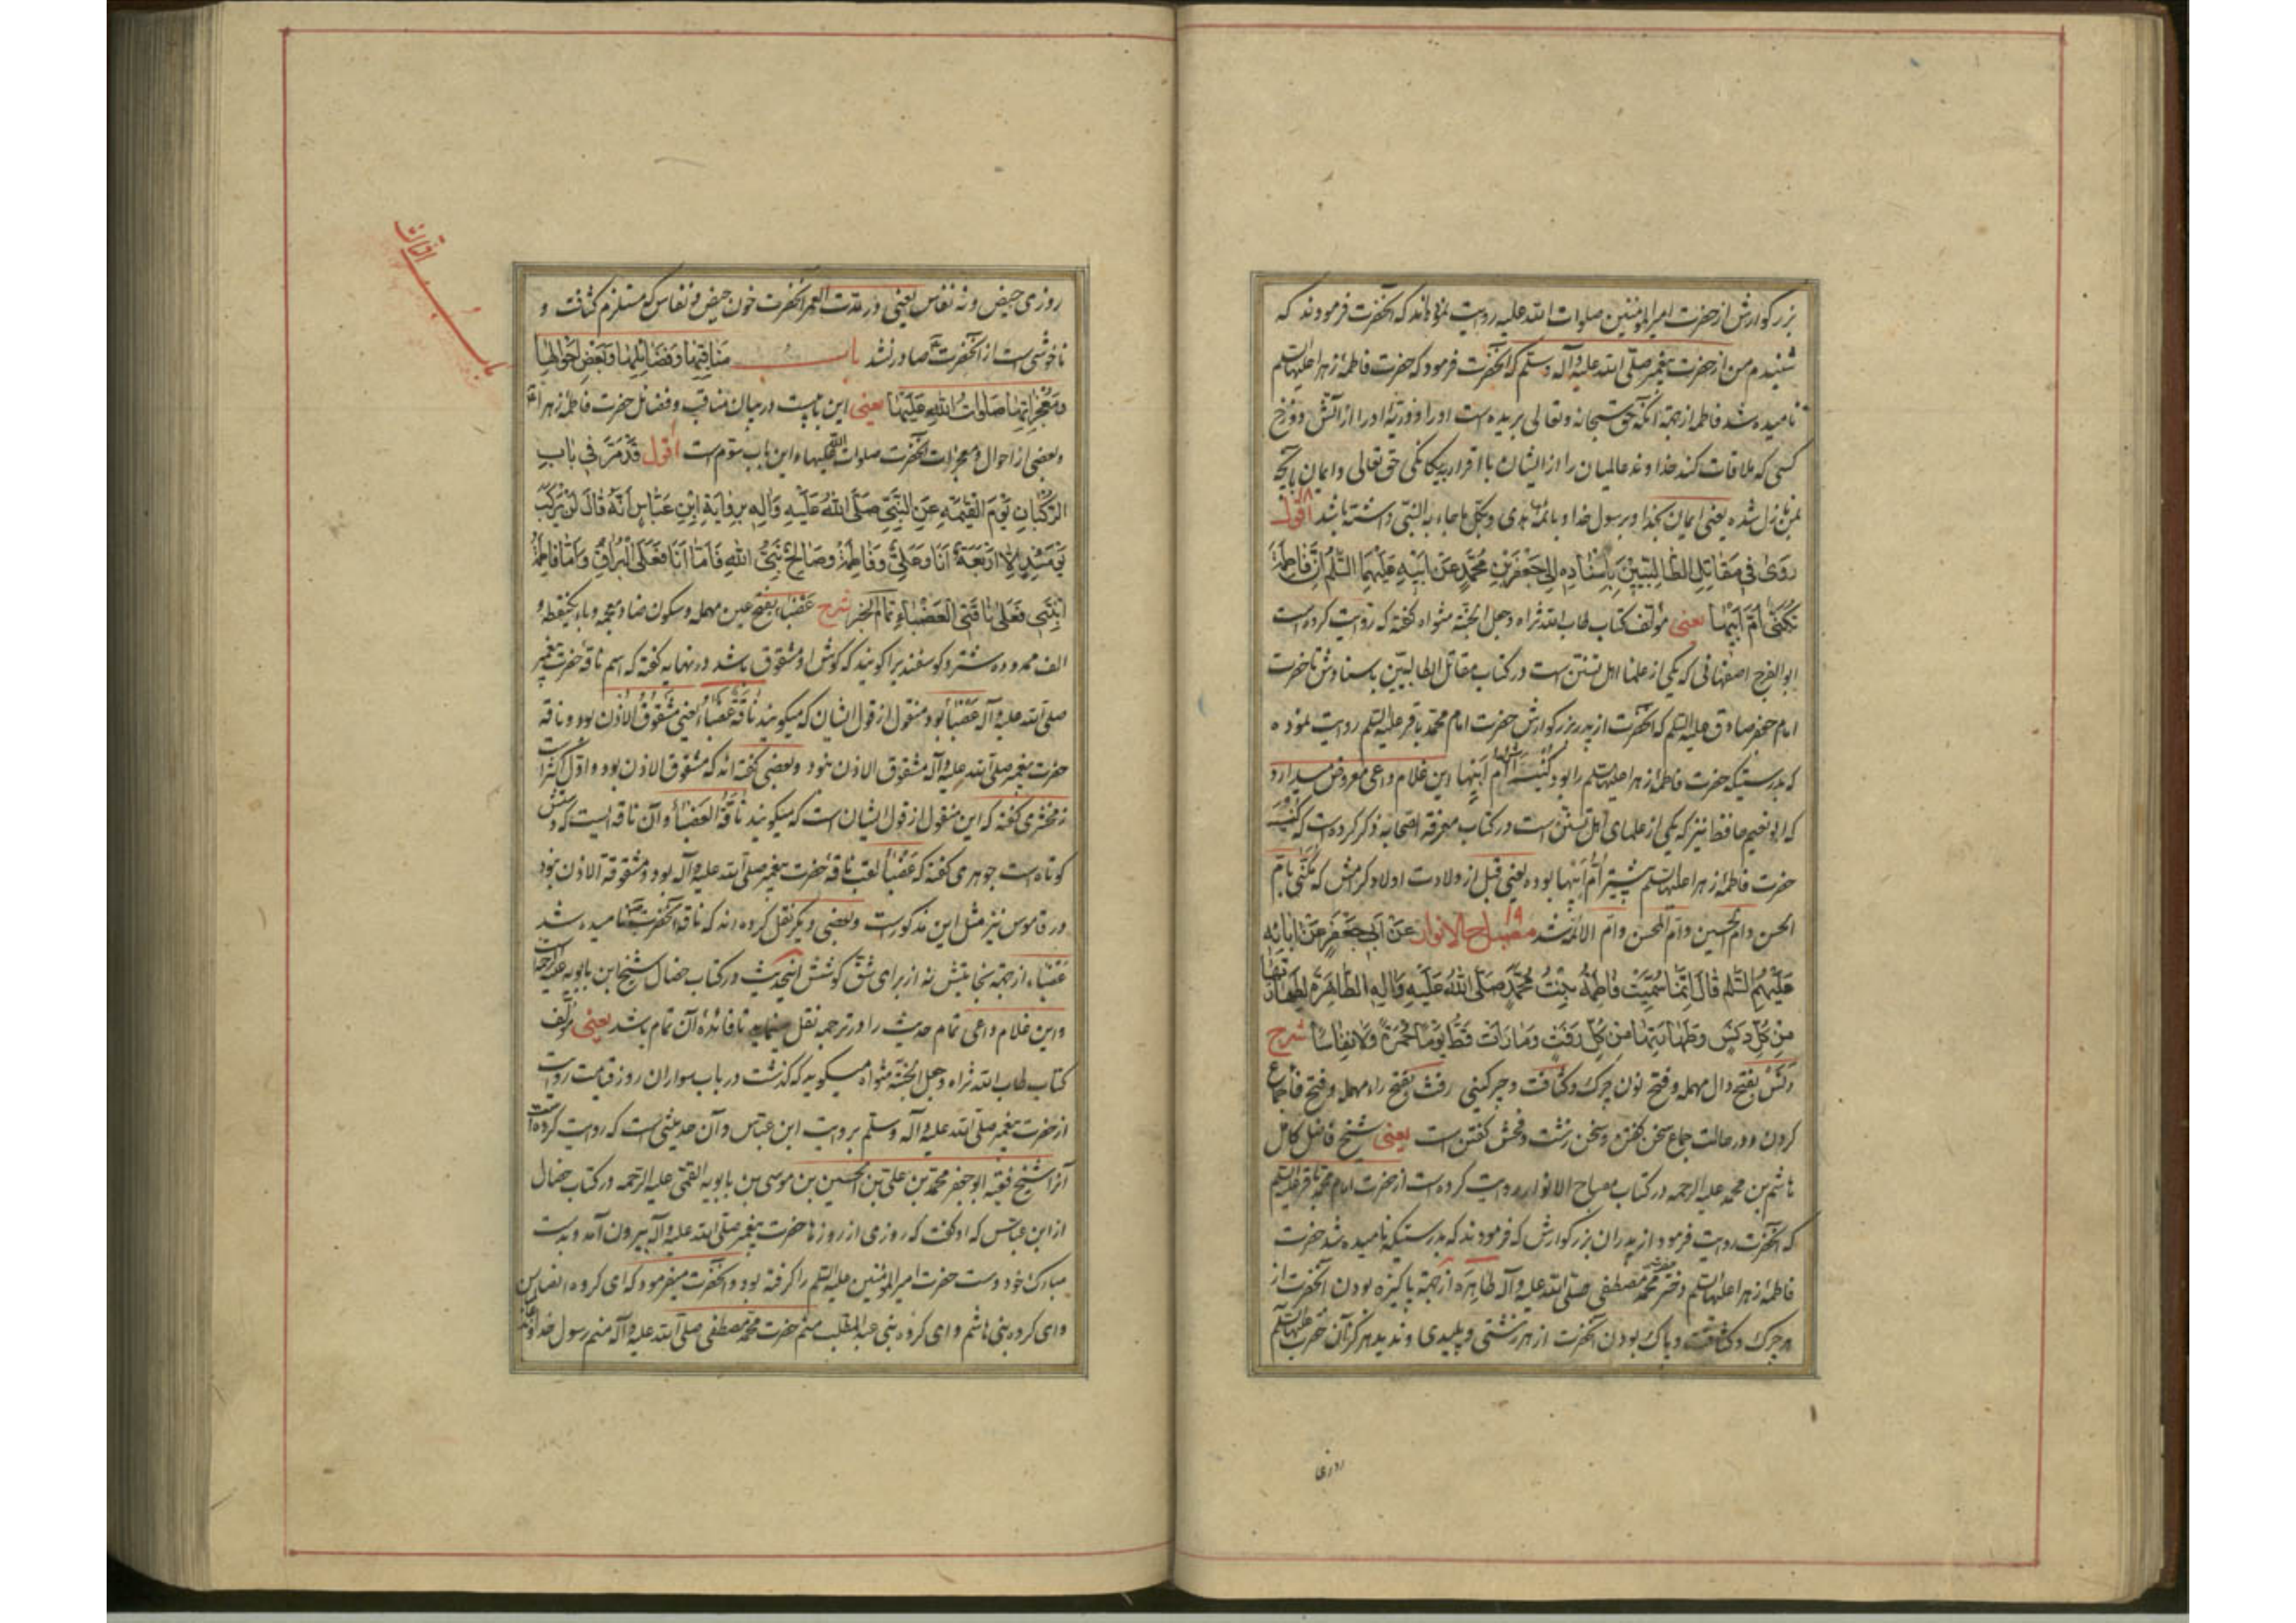 بزرگوارش از حضرت امیرالمؤمنین صلوات الله علیه روایت نموده‌اند که آنحضرت فرمودند که
شنیدم من از حضرت پیغمبر صلّی الله علیه و آله وسلّم که آنحضرت فرمود که حضرت فاطمهٔ زهرا علیها السلم
نامیده شد فاطمه از جهة آنکه حق سبحانه و تعالی بریده است او را و ذریّهٔ او را از آتش دوزخ
کسی که ملاقات کند خداوند عالمیان را از ایشان با اقرار بیگانگی حق تعالی و ایمان بآنچه
بمن نازل شده یعنی ایمان بخدا و برسول خدا و بائمّه هدی و بکل ما جاء به النبی داشته باشد ۱۸ اقول
رَوَی فی مَقاتِلِ الطّالِبیّینَ بِاِسْنادِهِ اِلی جَعْفَرِ بْنِ مُحَمَّدٍ عَنْ اَبیهِ عَلَیْهِمَا السَّلم اَنَّ فاطِمَةَ
تُکَنّی اُمَّ اَبیها یعنی مؤلف کتاب طاب الله ثراه و جعل الجنّة مثواه گفته که روایت کرده است
ابوالفرج اصفهانی که یکی از علماء اهل تسنّن است در کتاب مقاتل الطالبیّین باسنادش تا حضرت
امام جعفر صادق علیه السلم که آنحضرت از پدر بزرگوارش حضرت امام محمّد باقر علیه السلم روایت نموده
که بدرستیکه حضرت فاطمهٔ زهرا علیها السلم را بود کنیت اُم اَبیها این غلام داعی معروض میدارد
که ابو نعیم حافظ نیز که یکی از علمای اهل تسنن است در کتاب معرفة الصحابه ذکر کرده است که کنیت
حضرت فاطمهٔ زهرا علیها السلم پیشتر اُمّ اَبیها بوده یعنی قبل از ولادت اولاد کرامش که مکنّی بامّ
الحسن و امّ الحسین و امّ المحسن و امّ الائمّه شد ۱۹ مصباح الانوار عَنْ اَبی جَعْفَرٍ عَنْ ابائِهِ
عَلَیْهِمُ السَّلم قالَ اِنَّما سُمِّیَتْ فاطِمَةُ بِنْتُ مُحَمَّدٍ صَلَّی اللهُ عَلَیْهِ وَآلِهِ الطّاهِرَةَ لِطَهارَتِها
مِنْ کُلِّ دَنَسٍ وَطَهارَتِها مِنْ کُلِّ رَفَثٍ وَما رَاَتْ قَطُّ یَوْماً حُمْرَةً وَلا نِفاساً شرح
دَنَس بفتح دال مهمله و فتح نون چرک و کثافت و چرکینی رفث بفتح راء مهمله و فتح فا جماع
کردن و در حالت جماع سخن گفتن و سخن زشت و فحش گفتن است یعنی شیخ فاضل کامل
هاشم بن محمّد علیه الرحمه در کتاب مصباح الانوار روایت کرده است از حضرت امام محمّد باقر علیه السلم
که آنحضرت روایت فرمود از پدران بزرگوارش که فرمودند که بدرستیکه نامیده شد حضرت
فاطمهٔ زهرا علیها السلم دختر حضرت محمّد مصطفی صلّی الله علیه و آله طاهِرَه از جهة پاکیزه بودن آنحضرت از
هر چرک و کثافت و پاک بودن آنحضرت از هر زشتی و پلیدی و ندید هرگز آن حضرت علیها السلم
روزی
روزی حیض و نه نفاس یعنی در مدّت العمر آنحضرت خون حیض و نفاس که مستلزم کثافت و
ناخوشی است از آنحضرت صادر نشد باب مَناقِبِها وَفَضائِلِها وَبَعْضِ اَحْوالِها
وَمُعْجِزاتِها صَلَواتُ اللهِ عَلَیْها یعنی این باب است در بیان مناقب و فضائل حضرت فاطمهٔ زهرا
و بعضی از احوال و معجزات آنحضرت صلوات الله علیها و این باب سوّم است اقول قَدْ مَرَّ فی بابِ
الرُّکْبانِ یَوْمَ الْقِیٰمَةِ عَنِ النَّبِیِّ صَلَّی اللهُ عَلَیْهِ وَآلِهِ بِرِوایَةِ ابْنِ عَبّاسٍ اَنَّهُ قالَ لَنْ یَرْکَبَ
یَوْمَئِذٍ اِلّا اَرْبَعَةٌ اَنَا وَعَلِیٌّ وَفاطِمَةُ وَصالِحٌ نَبِیُّ اللهِ فَاَمّا اَنَا فَعَلَی الْبُراقِ وَاَمّا فاطِمَةُ
ابْنَتی فَعَلی ناقَتِیَ الْعَضْباءِ تمام الخبر شرح عَضْباء بفتح عین مهمله و سکون ضاد معجمه و باء یکنقطه و
الف ممدوده شتر و گوسفندیرا گویند که گوش او مشقوق باشد در نهایه گفته که اسم ناقهٔ حضرت پیغمبر
صلّی الله علیه و آله عَضْبا بود منقول از قول ایشان که میگویند ناقَةٌ عَضْباءُ یعنی مَشْقُوقُ الاُذُن بود و ناقه
حضرت پیغمبر صلّی الله علیه و آله مشقوق الاذن نبود و بعضی گفته‌اند که مشقوق الاذن بود و اوّل اکثر است
زمخشری گفته که این منقول از قول ایشان است که میگویند ناقَةُ العَضْباء و آن ناقه ایست که دستش
کوتاه است جوهری گفته که عَضْبا لقب ناقهٔ حضرت پیغمبر صلّی الله علیه و آله بود و مشقوقة الاذن نبود
در قاموس نیز مثل این مذکور است و بعضی دیگر نقل کرده‌اند که ناقهٔ آنحضرت نامیده شد
عَضْباء از جهة نجابتش نه از برای شقّ گوشش اینحدیث در کتاب خصال شیخ ابن بابویه علیه الرحمه است
و این غلام داعی تمام حدیث را در ترجمه نقل مینماید تا فائدهٔ آن تمام باشد یعنی مؤلف
کتاب طاب الله ثراه و جعل الجنّة مثواه میگوید که گذشت در باب سواران روز قیامت روایت
از حضرت پیغمبر صلّی الله علیه و آله وسلّم بروایت ابن عبّاس و آن حدیثی است که روایت کرده است
آنرا شیخ فقیه ابو جعفر محمّد بن علی بن الحسین بن موسی بن بابویه القمّی علیه الرحمه در کتاب خصال
از ابن عبّاس که او گفت که روزی از روزها حضرت پیغمبر صلّی الله علیه و آله بیرون آمد و بدست
مبارک خود دست حضرت امیرالمؤمنین علیه السلم را گرفته بود و آنحضرت میفرمود که ای گروه انصار
و ای گروه بنی هاشم و ای گروه بنی عبدالمطلب منم حضرت محمّد مصطفی صلّی الله علیه و آله منم رسول خداوند